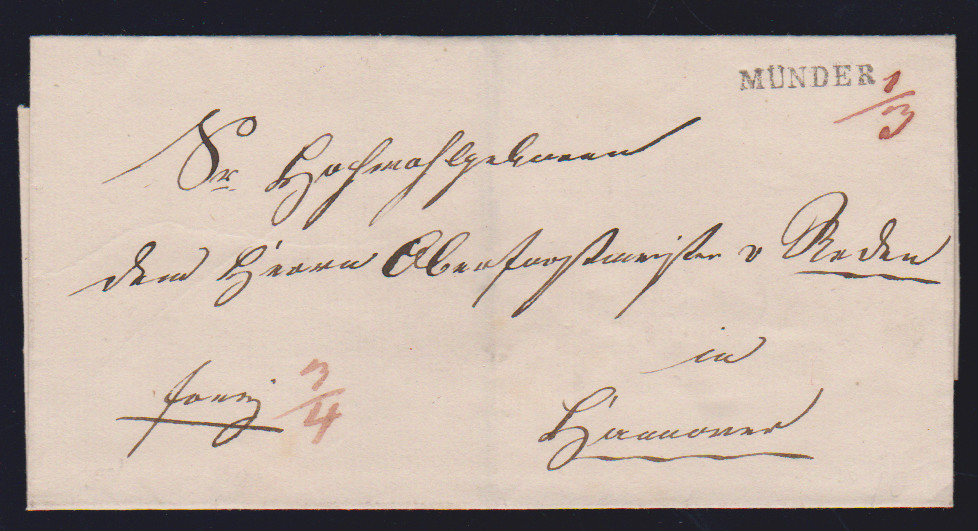 MÜNDER 1/3
Sr Hochwohlgeboren
dem Herrn Oberforstmeister v Reden
in
franz 3/4
Hannover